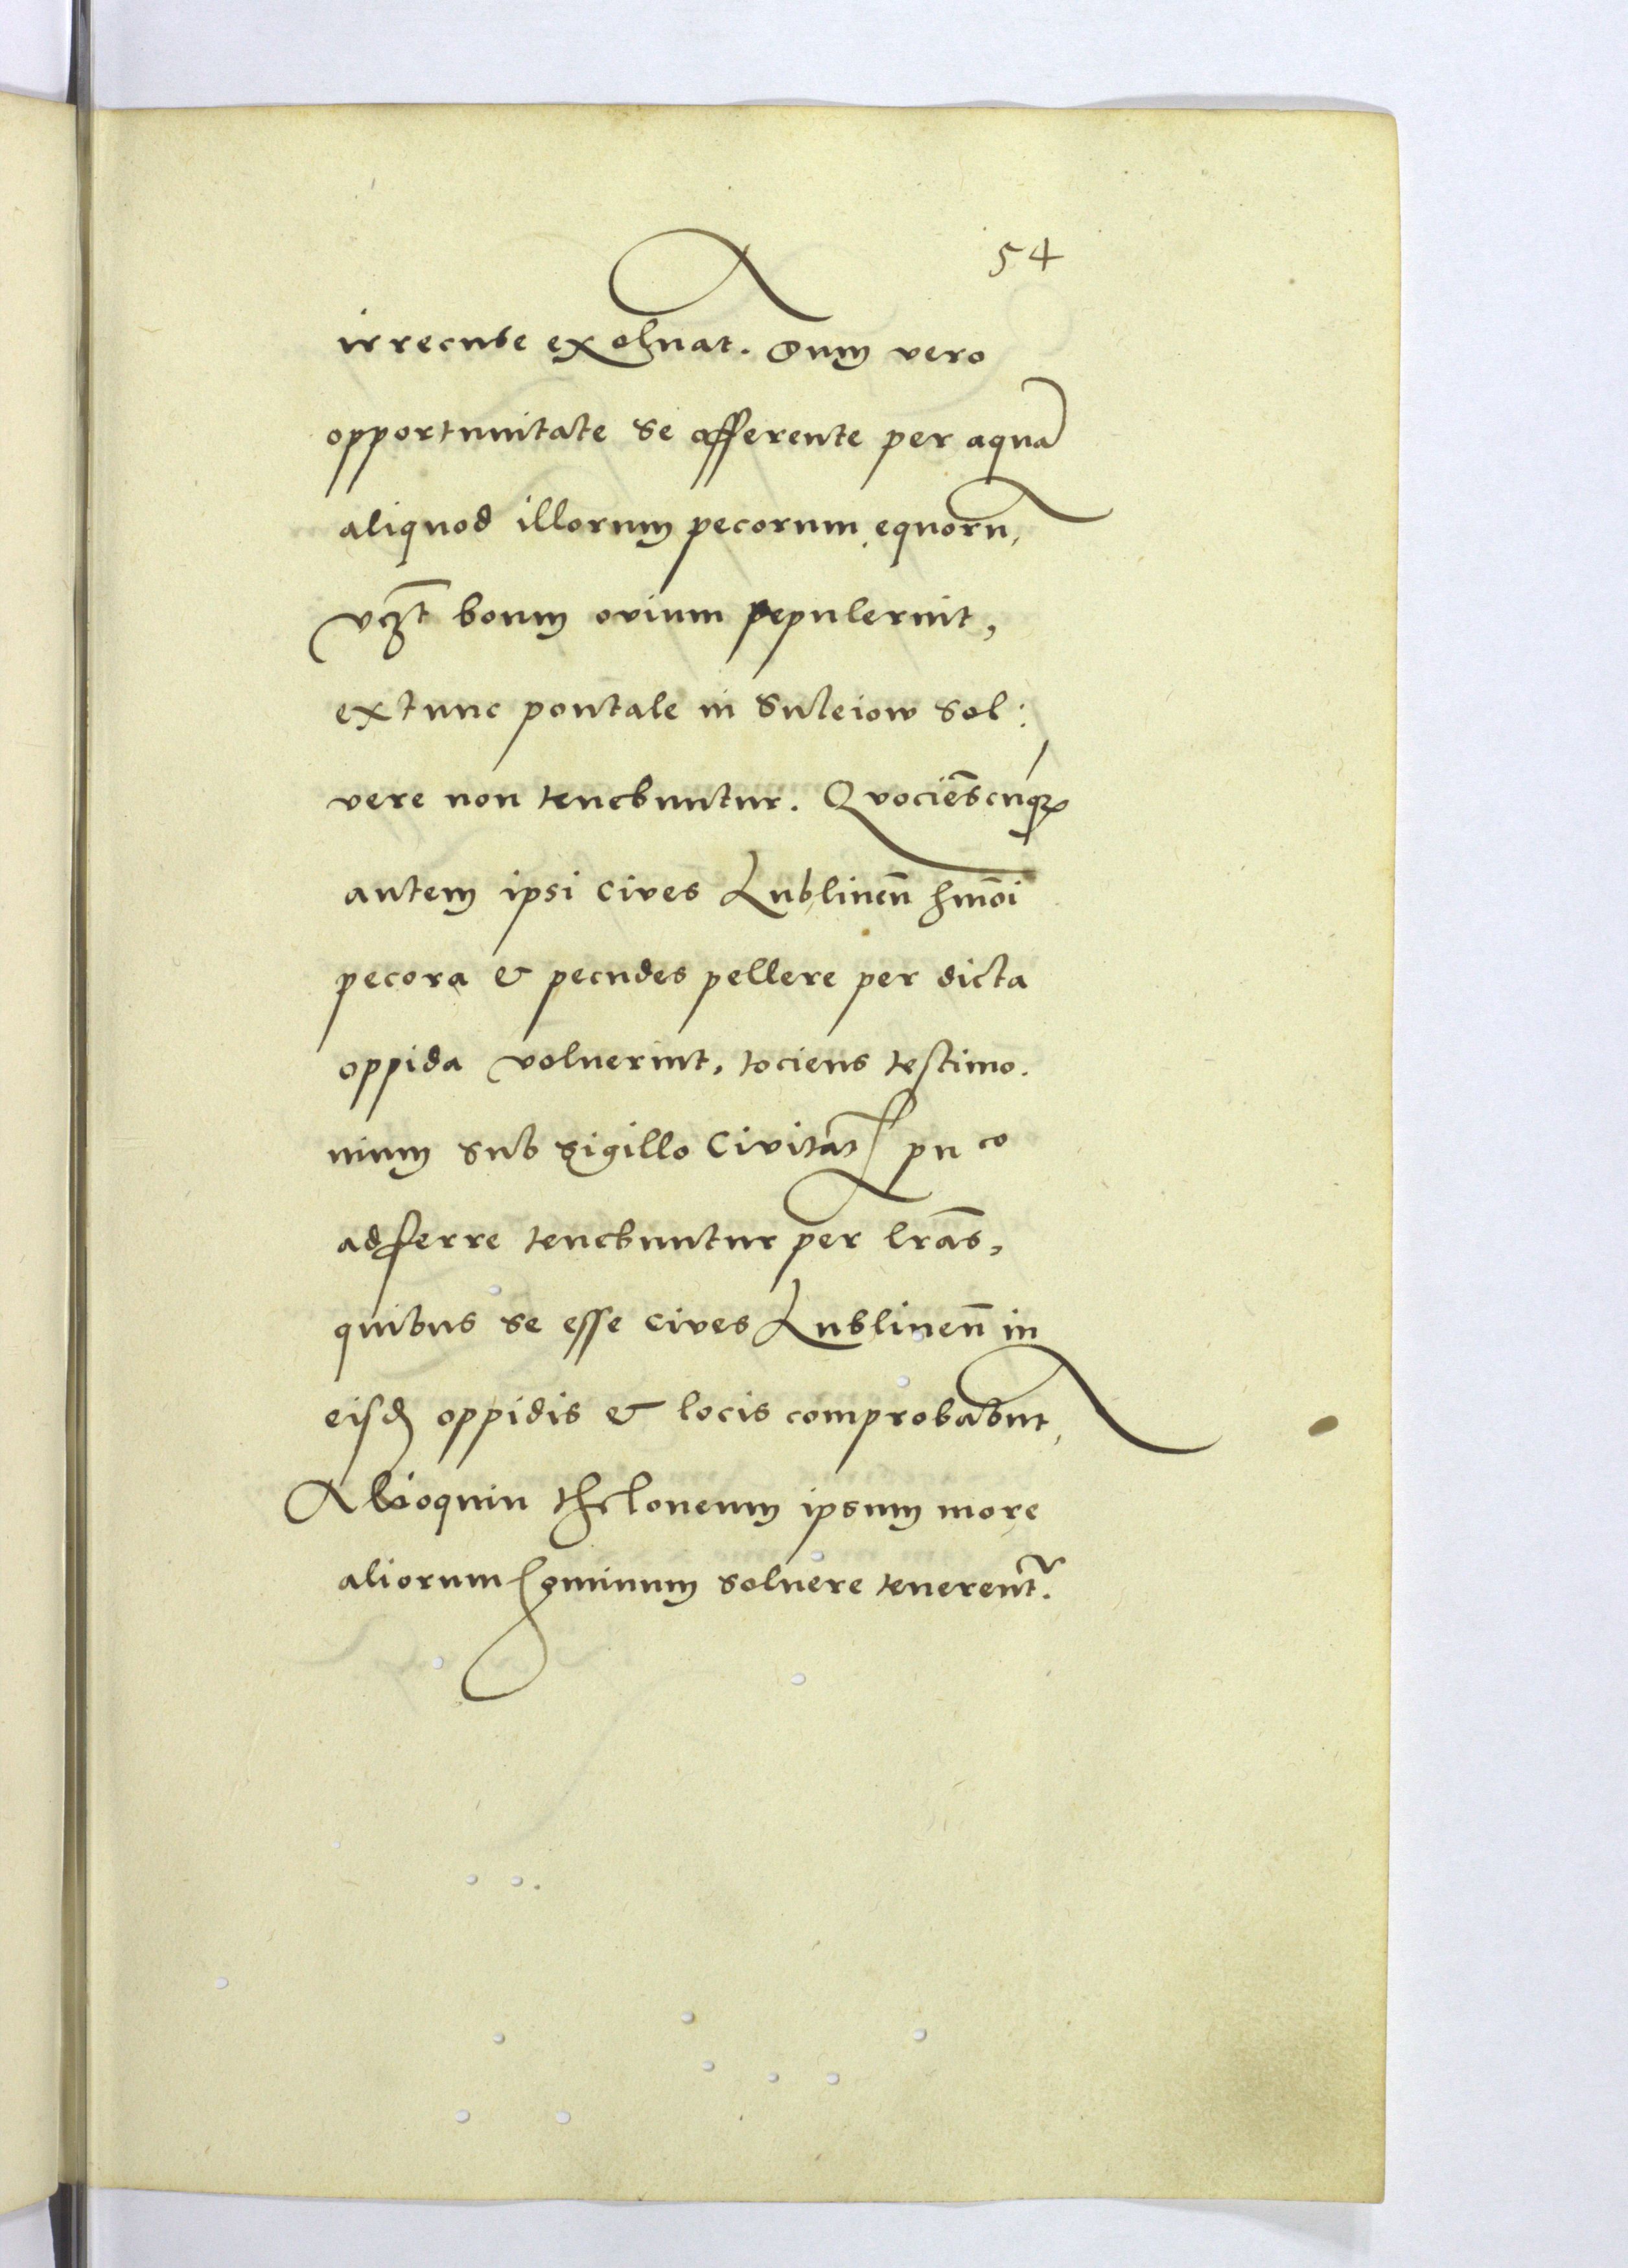 54
irrecuse exoluat. Dum vero
opportunitate se afferente per aquā
aliquod illorum pecorum equorū,
vcꝫt boum ovium pepulerint,
extunc pontale in Suleiow sol:
vere non tenebuntur. Quociēscūqꝫ
autem ipsi cives Lublineñ hmōi
pecora & pecudes pellere per dicta
oppida voluerint, tociens testimo.
nium sub sigillo Civitat
adferre tenebuntur per lrās,
quibus se esse cives Lublineñ in
eisd oppidis & locis comprobabūt,
Alioquin theloneum ipsum more
aliorum hominum soluere tenerent.